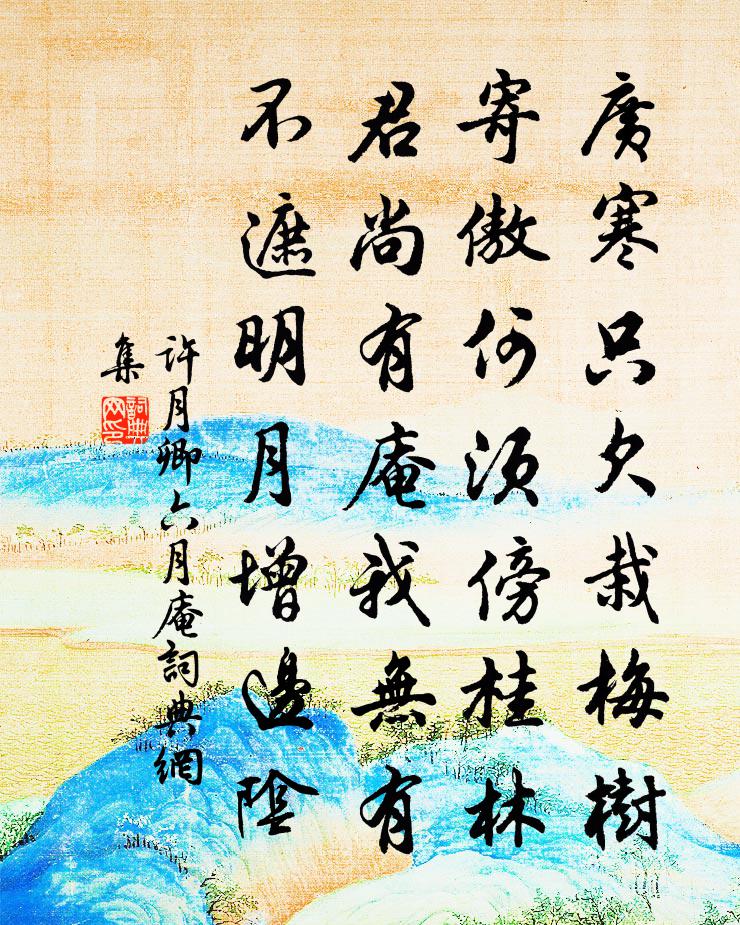 廣寒只欠栽梅樹
寄傲何須傍桂林
君尚有庵我無有
不遮明月增邊陰
許月卿六月庵詞典網
集
詞典
网印